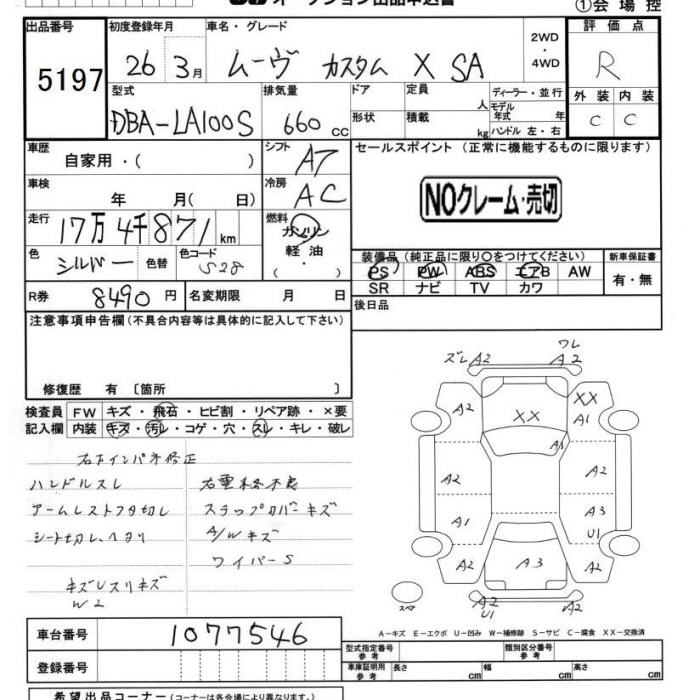 オークション出品申込書
①会場控
出品番号 初度登録年月 車名・グレード 2WD・4WD 評価点
5197 26年 3月 ムーヴ カスタム X SA R
型式 排気量 ドア 定員 人 ディーラー・並行 外装 内装
DBA-LA100S 660cc 形状 積載 kg モデル年式 年 ハンドル 左・右 C C
車歴 自家用・( ) シフト AT セールスポイント (正常に機能するものに限ります)
車検 年 月( 日) 冷房 AC NOクレーム・売切
走行 17万4千871km 燃料 ガソリン
軽油
・( )
色 シルバー 色替 色コード S28 装備品(純正品に限り○をつけてください) 新車保証書
PS PW ABS エアB AW 有・無
SR ナビ TV カワ
R券 8490円 名変期限 月 日 後日品
注意事項申告欄(不具合内容等は具体的に記入して下さい)
修復歴 有 〔箇所 〕
検査員 FW キズ・飛石・ヒビ割・リペア跡・×要
記入欄 内装 キズ・汚レ・コゲ・穴・スレ・キレ・破レ
ハンドルスレ
アームレストフタ切レ ステップカバーキズ
シート切レ、ヘタリ A/Wキズ
ワイパーS
キズUスリキズ
W2
ズレA2 ワレ A2
A2 XX XX A1
A1
A2 A2
A1 A3
U1
A2 A3 A2
A2 A2
U1
スペア
A-キズ E-エクボ U-凹み W-補修跡 S-サビ C-腐食 XX-交換済
車台番号 1077546
型式指定番号 参考 類別区分番号 参考
登録番号 車庫証明用 参考 長さ cm 幅 cm 高さ cm
希望出品コーナー(コーナーは各会場により異なります。)